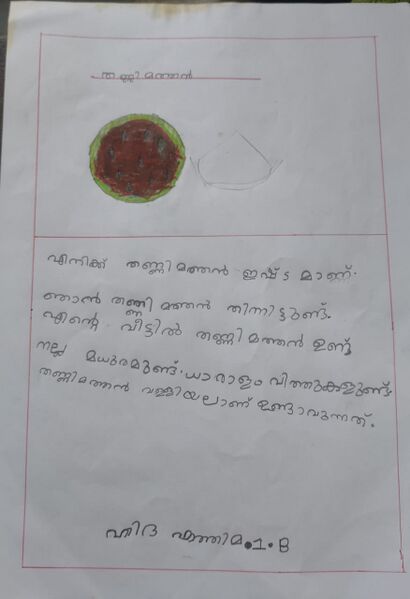 തണ്ണിമത്തൻ
എനിക്ക് തണ്ണിമത്തൻ ഇഷ്ടമാണ്.
ഞാൻ തണ്ണിമത്തൻ തിന്നിട്ടുണ്ട്.
എന്റെ വീട്ടിൽ തണ്ണിമത്തൻ ഉണ്ട്
നല്ല മധുരമുണ്ട്. ധാരാളം വിത്തുകളുണ്ട്.
തണ്ണിമത്തൻ വള്ളിയലാണ് ഉണ്ടാവുന്നത്.
ഹിദ ഫാത്തിമ.1.B